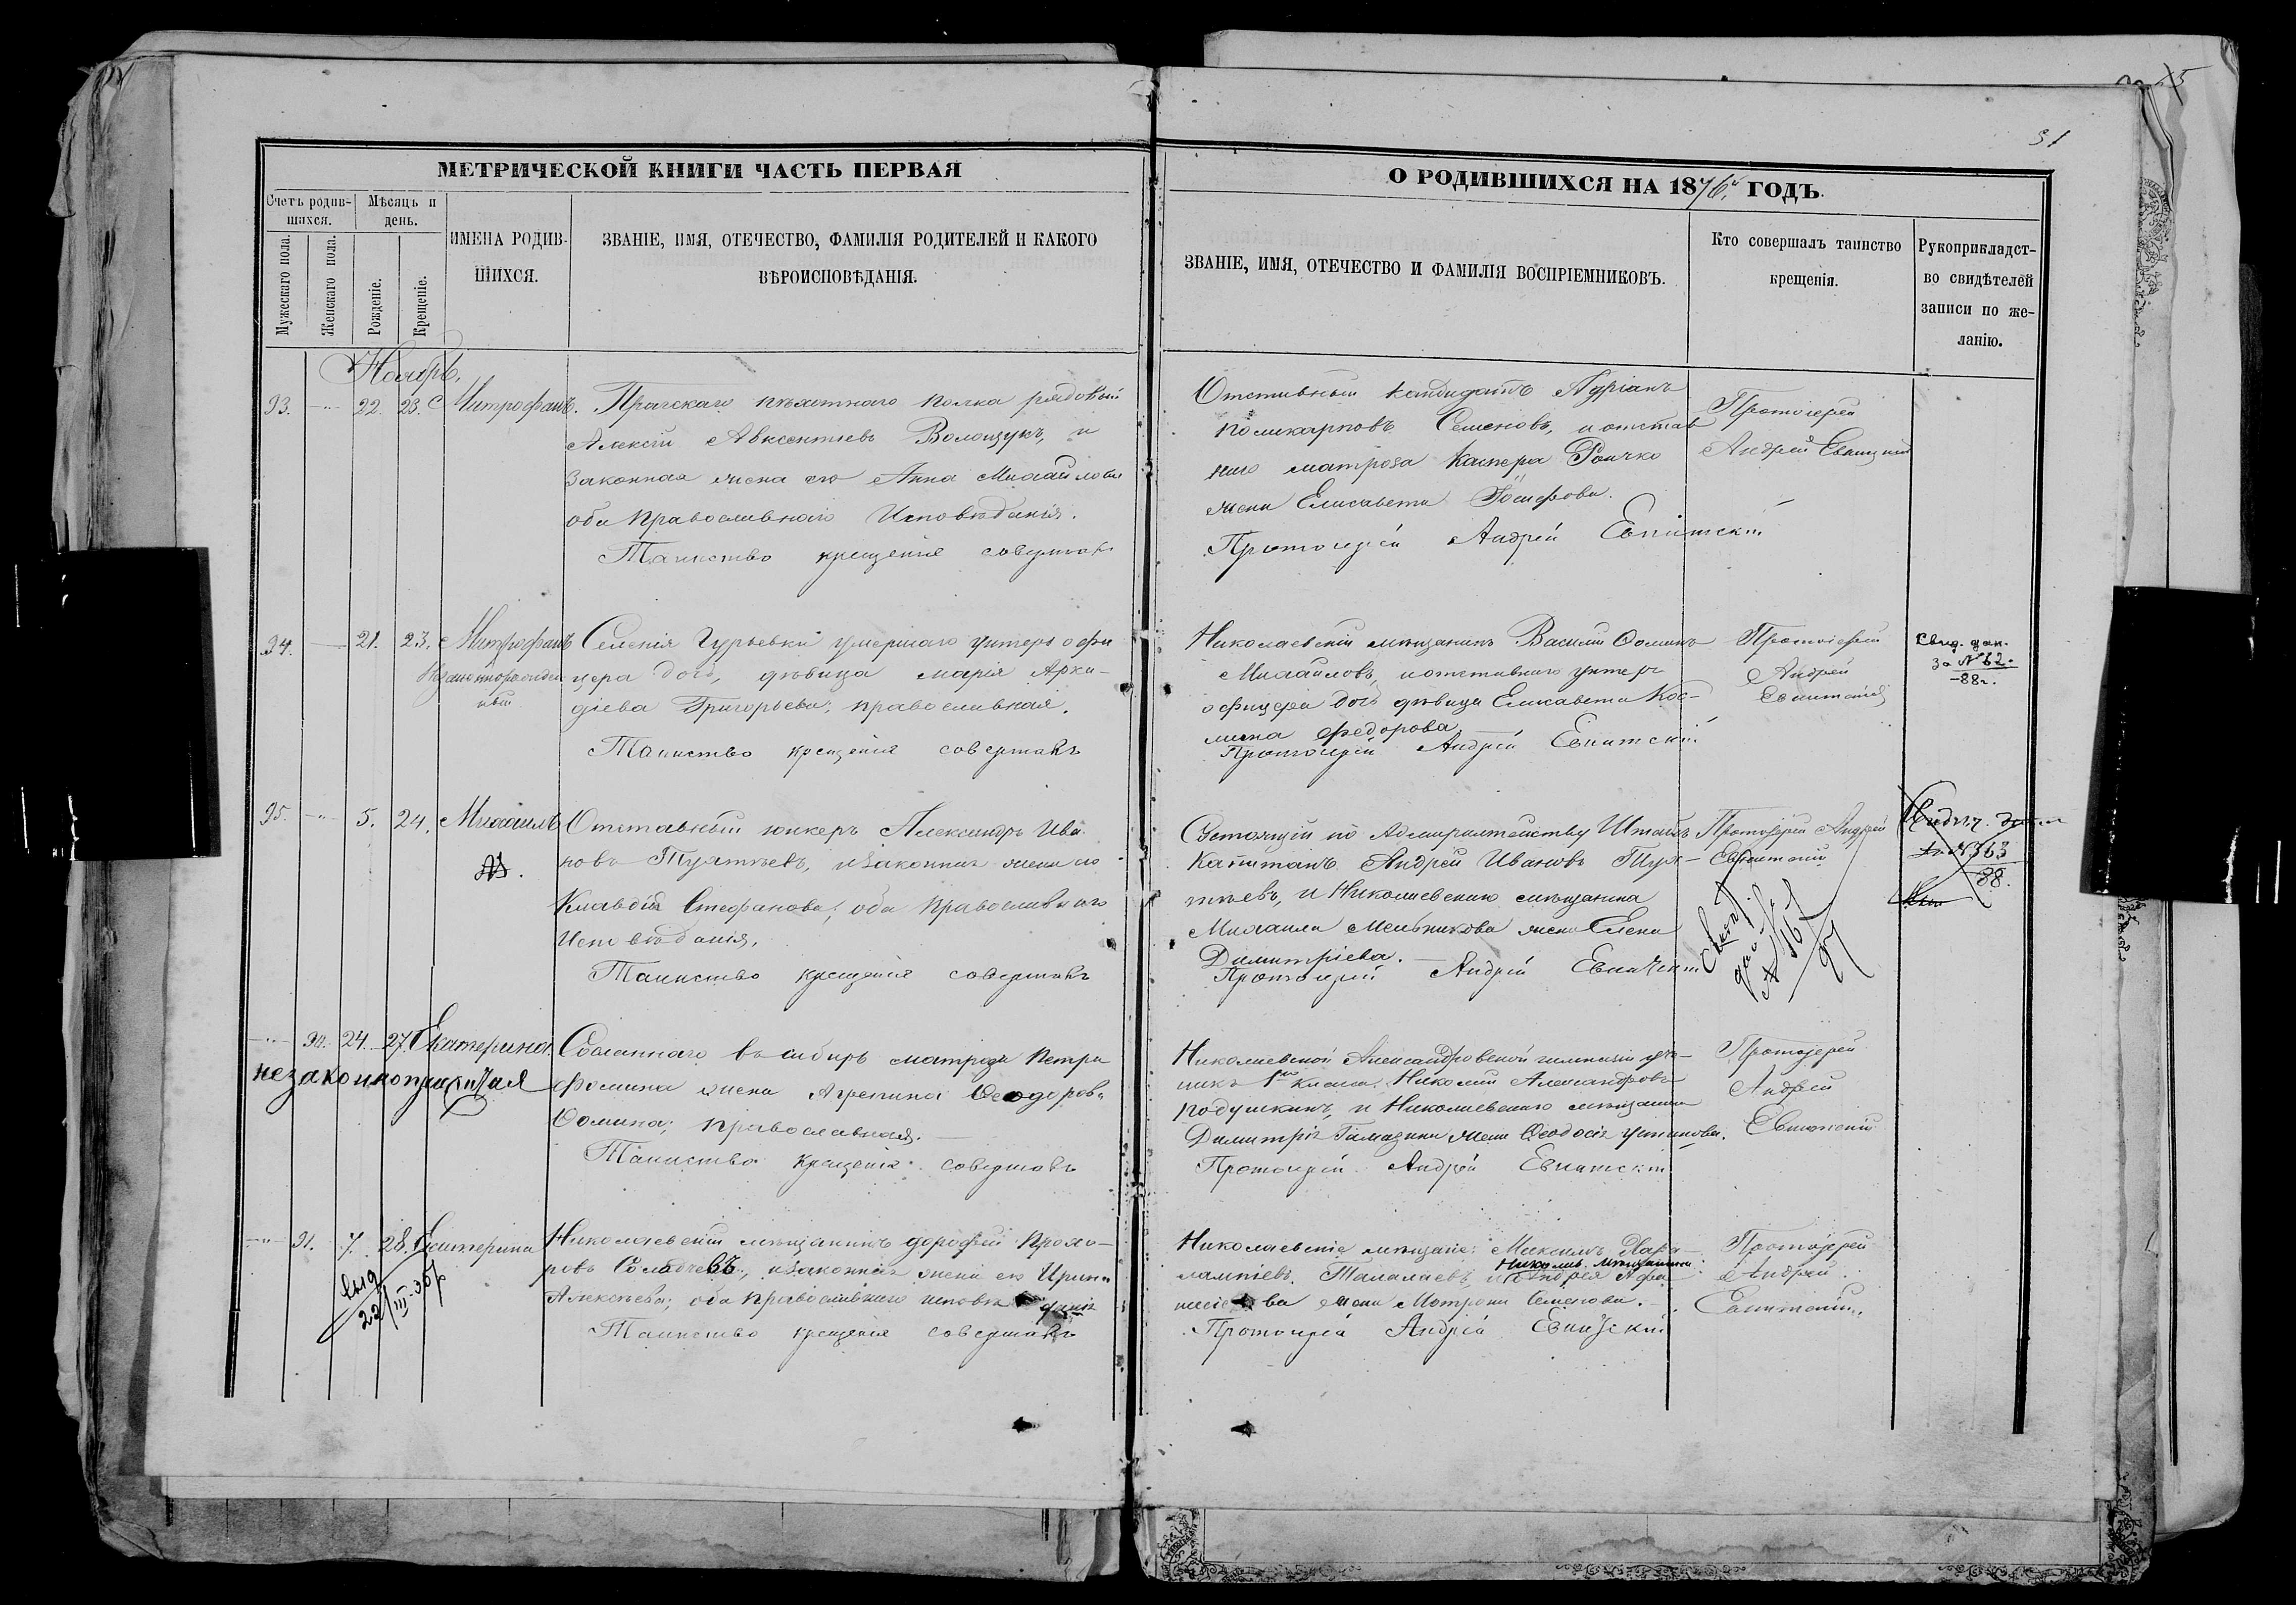 31
МЕТРИЧЕСКОЙ КНИГИ ЧАСТЬ ПЕРВАЯ
О РОДИВШИХСЯ НА 1876й ГОДЪ.
Счетъ родив-
шихся.
Мѣсяцъ и
день.
Мужескаго пола.
Женскаго пола.
Рожденіе.
Крещеніе.
ИМЕНА РОДИВ-
ШИХСЯ.
ЗВАНІЕ, ИМЯ, ОТЕЧЕСТВО, ФАМИЛІЯ РОДИТЕЛЕЙ И КАКОГО
ВѢРОИСПОВѢДАНІЯ.
ЗВАНІЕ, ИМЯ, ОТЕЧЕСТВО И ФАМИЛІЯ ВОСПРІЕМНИКОВЪ.
Кто совершалъ таинство
крещенія.
Рукоприкладст-
во свидѣтелей
записи по же-
ланію.
Ноябрь.
93. 22. 23. Митрофанъ.
Прагскаго пѣхотнаго полка рядовый
Алексій Авксентіевъ Волощукъ, и
законная жена его Анна Михайлова
оба православнаго Исповѣданія.
Таинство крещенія совершалъ
Отставный кандидатъ Адріанъ
Поликарповъ Семеновъ, и отстав
наго матроза Каспера Рончко
жена Елисавета Іосифова.
Протоіерей Андрей Евпитскій
Протоіерей
Андрей Евпитскій
94. 21. 23. Митрофанъ
Незаконнорожден
ный
Селенія Гурьевки умершаго унтеръ офи
цера дочь, дѣвица Марія Арка-
діева Григорьева, православная.
Таинство крещенія совершалъ
Николаевскій мѣщанинъ Василій Ѳоминъ
Михайловъ, и отставнаго унтеръ
офицера дочь дѣвица Елисавета Кос-
мина Федорова
Протоіерей Андрей Евпитскій
Протоіерей
Андрей
Евпитскій
Свид. дан.
за № 62.
-88г.
95. 5. 24. Михаилъ
Отставный юнкеръ Александръ Ива-
новъ Тулятьевъ, и законная жена его
Клавдія Стефанова; оба православнаго
Исповѣданія.
Таинство крещенія совершалъ
Состоящій по Адмиралтейству Штабсъ
Капитанъ Андрей Ивановъ Туля-
тьевъ, и Николаевскаго мѣщанина
Михаила Мельникова жена Елена
Димитріева.
Протоіерей Андрей Евпитскій
Протоіерей Андрей
Евпитскій
№ 363
88.
90. 24. 27. Екатерина.
незаконнорожденная
Сосланнаго въ сибирь матроза Петра
Фомина жена Агрепина Ѳеодорова
Ѳомина; православная.
Таинство крещенія совершалъ
Николаевской Александровской гимназіи уче-
никъ 1го класса Николай Александровъ
Подушкинъ, и Николаевскаго мѣщанина
Димитрія Гамазина жена Ѳеодосія Устинова.
Протоіерей Андрей Евпитскій
Протоіерей
Андрей
Евпитскій
91. 7. 28. Екатерина
Выд
22/III-36г
Николаевскій мѣщанинъ Дорофей Прохо-
ровъ Солдачевъ, и законная жена его Ирина
Алексѣева; оба православнаго исповѣданія
Таинство крещенія совершалъ
Николаевскіе мѣщане: Максимъ Хара-
лампіевъ Талалаевъ, и Никол. мѣщанина Андрея Афа
насіева жена Матрона Семенова.
Протоіерей Андрей Евпитскій
Протоіерей
Андрей
Евпитскій